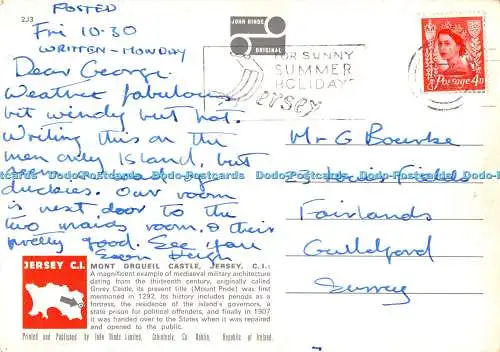 2J3
POSTED
Fri 10.30
WRITTEN - MONDAY
Dear George.
Weather fabulous
bit windy but hot.
Writing this on the
men only Island, but
duckies. Our room
is next door to the
two maids room, & their
pretty good. See you
Soon
JOHN HINDE
ORIGINAL
FOR SUNNY
SUMMER
HOLIDAYS
Jersey
Postage 4D
Mr G Bourke
23 Louis Fields
Fairlands
Guildford
Surrey
Dodo-Postcards Dodo-Postcards Dodo-Postcards Dodo-Postcards Dodo-Postcards
JERSEY C.I.
MONT ORGUEIL CASTLE, JERSEY, C.I.:
A magnificent example of mediaeval military architecture
dating from the thirteenth century, originally called
Gorey Castle, its present title (Mount Pride) was first
mentioned in 1292. Its history includes periods as a
fortress, the residence of the island's governors, a
state prison for political offenders, and finally in 1907
it was handed over to the States when it was repaired
and opened to the public.
Printed and Published by John Hinde Limited, Cabinteely, Co. Dublin, Republic of Ireland.